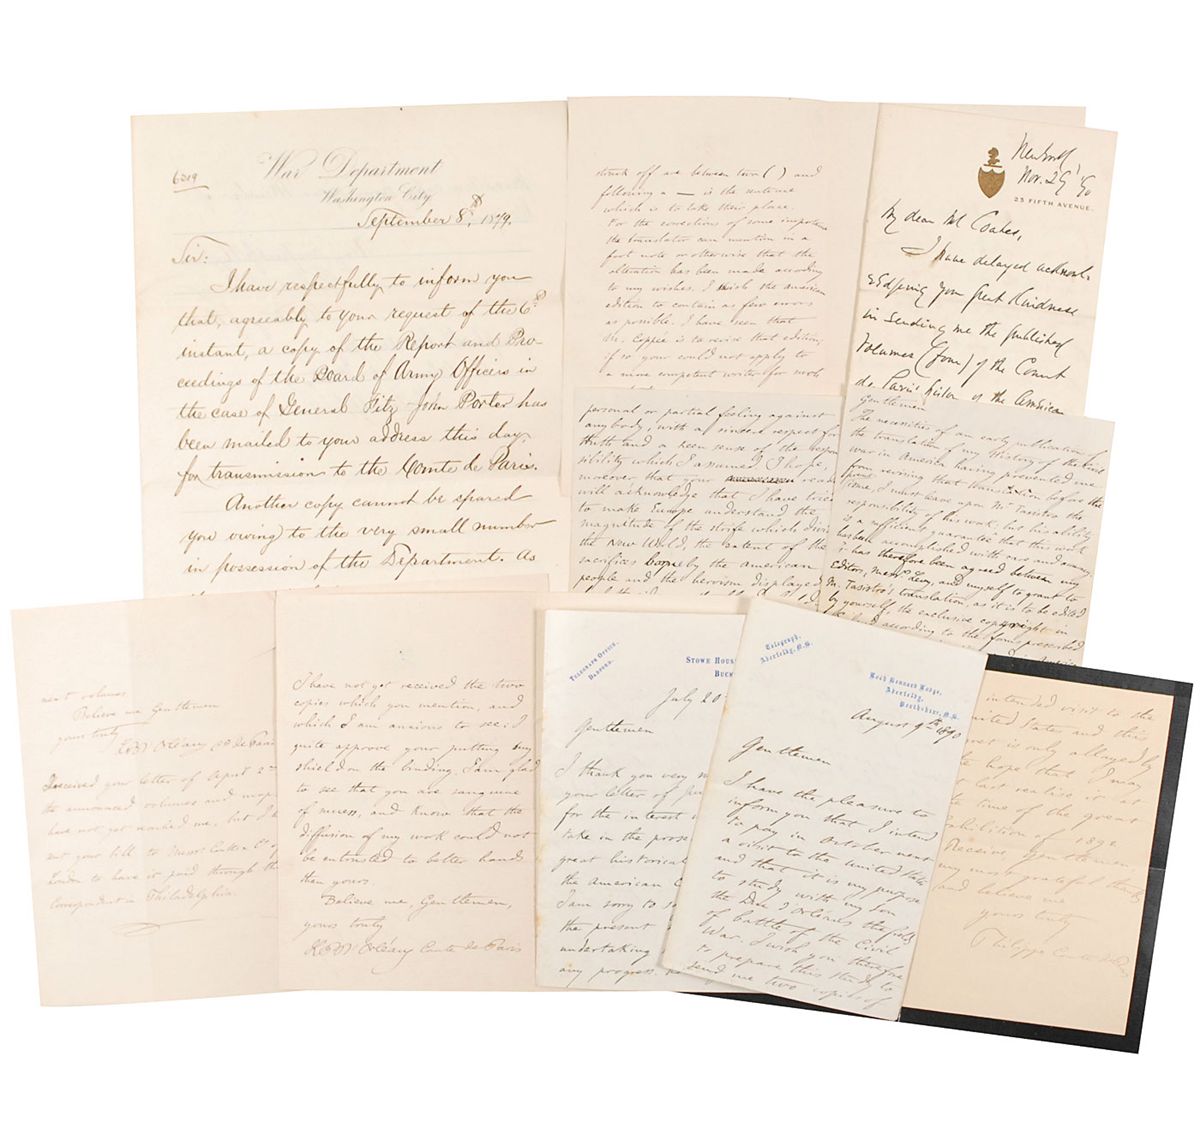 6219
War Department
Washington City
September 8th, 1879.
Sir:
I have respectfully to inform you
that, agreeably to your request of the 6th
instant, a copy of the Report and Pro-
ceedings of the Board of Army Officers in
the case of General Fitz-John Porter has
been mailed to your address this day,
for transmission to the Comte de Paris.
Another copy cannot be spared
you owing to the very small number
in possession of the Department. As
struck off are between two ( ) and
following a — is the sentence
which is to take their place.
For the corrections of some importance
the translator can mention in a
foot note or otherwise that the
alteration has been made according
to my wishes. I wish the american
edition to contain as few errors
as possible. I have seen that
Mr. Coppée is to revise that edition;
if so your could not apply to
a more competent writer for such
23 FIFTH AVENUE.
New York
Nov. 29 '90
My dear Mr Coates,
I have delayed acknowl-
edging your great kindness
in sending me the published
volumes (four) of the Comte
de Paris' histor of the American
personal or partial feeling against
anybody, with a sincere respect for
truth and a keen sense of the respon
sibility which I assumed I hope,
moreover that your readers
will acknowledge that I have tried
to make Europe understand the
magnitude of the strife which divi
the New World, the extent of the
sacrifices borne by the american
people and the heroism displayed
Gentlemen
The necessities of an early publication of
the translation of my History of the Civil
war in America having prevented me
from revising that translation before the
time, I must leave upon Mr Tasistro the
responsibility of his work, but his ability
is a sufficient guarantee that this work
has been accomplished with care and accuracy
it has therefore been agreed between my
Editor, Messrs Levy, and myself to grant to
Mr. Tasistro's translation, as it is to be edited
by yourself, the exclusive copyright in
according to the forms prescribed
next volumes
Believe me Gentlemen
yours truly
LPd'Orléans Cte de Paris
Received your letter of April 2nd
the announced volumes and maps
have not yet reached me, but I
sent your bill to Messrs Coutts & Co of
London to have it paid through their
correspondent in Philadelphia.
I have not yet received the two
copies which you mention, and
which I am anxious to see; I
quite approve your putting my
shield on the binding. I am glad
to see that you are sanguine
of success, and know that the
diffusion of my work could not
be entrusted to better hands
than yours.
Believe me, Gentlemen,
yours truly
LPd'Orléans Comte de Paris
TELEGRAPH OFFICE,
DADFORD.
STOWE HOUS
BUCK
July 20
Gentlemen
I thank you very m
your letter of
for the interest
take in the
great historical
the American C
I am sorry to s
the present
undertaking
any progress
Telegraph,
Aberfeldy, N.B.
Loch Rannard Lodge,
Aberfeldy,
Perthshire, N.B.
August 9th 1890
Gentlemen
I have the pleasure to
inform you that I intend
to pay in October next
a visit to the United States
and that it is my purpose
to study with my Son
the Duc d'Orléans the fields
of battle of the Civil
War. I wish you therefore
to prepare this study to
send me two copies of
intended visit to the
United States and this
is only allayed by
the hope that I may
at last realise it at
the time of the great
Exhibition of 1892
Receive, Gentlemen,
my most grateful thanks
and believe me
yours truly
Philippe Comte de Paris